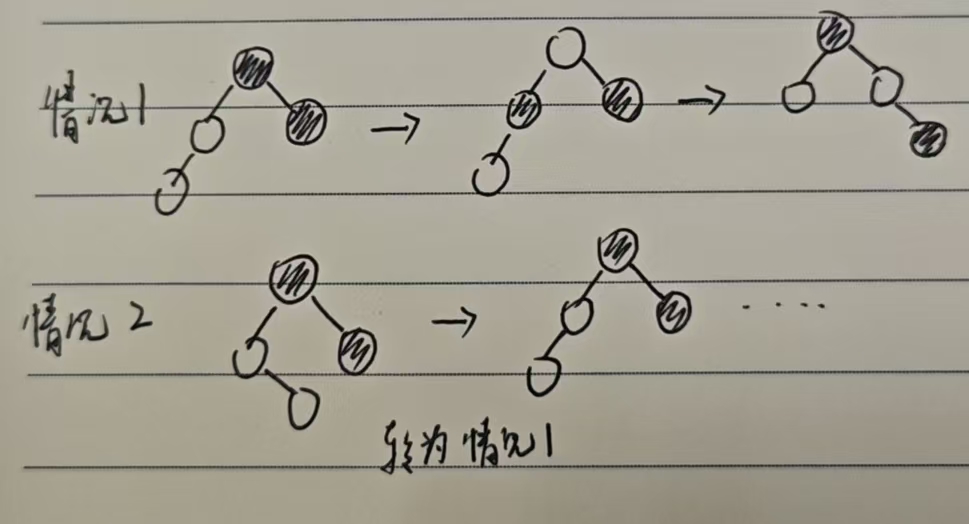 情况1
情况2
转为情况1